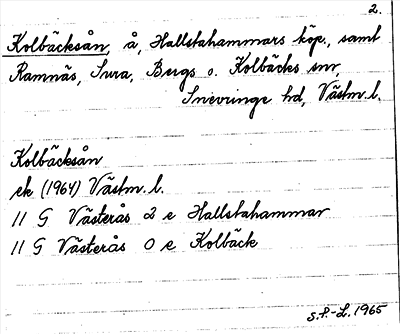 2.
Kolbäcksån, å, Hallstahammars köp., samt
Ramnäs, Sura, Bergs o. Kolbäcks snr,
Snevringe hd, Västm. l.
Kolbäcksån
ek (1964) Västm. l.
11 G Västerås 2 e Hallstahammar
11 G Västerås 0 e Kolbäck
S.P.-L. 1965